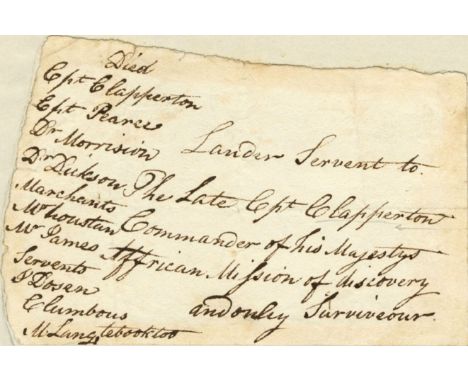 Died
Cpt Clapperton
Cpt Pearce
Dr Morrision
Dr Dickson
Marchants
Mr Houstan
Mr James
Servents
Clumbous
Lander Servent to
The Late Cpt Clapperton
Commander of his Majestys
Affrican Mission of discovery
and ouley Surviveour.